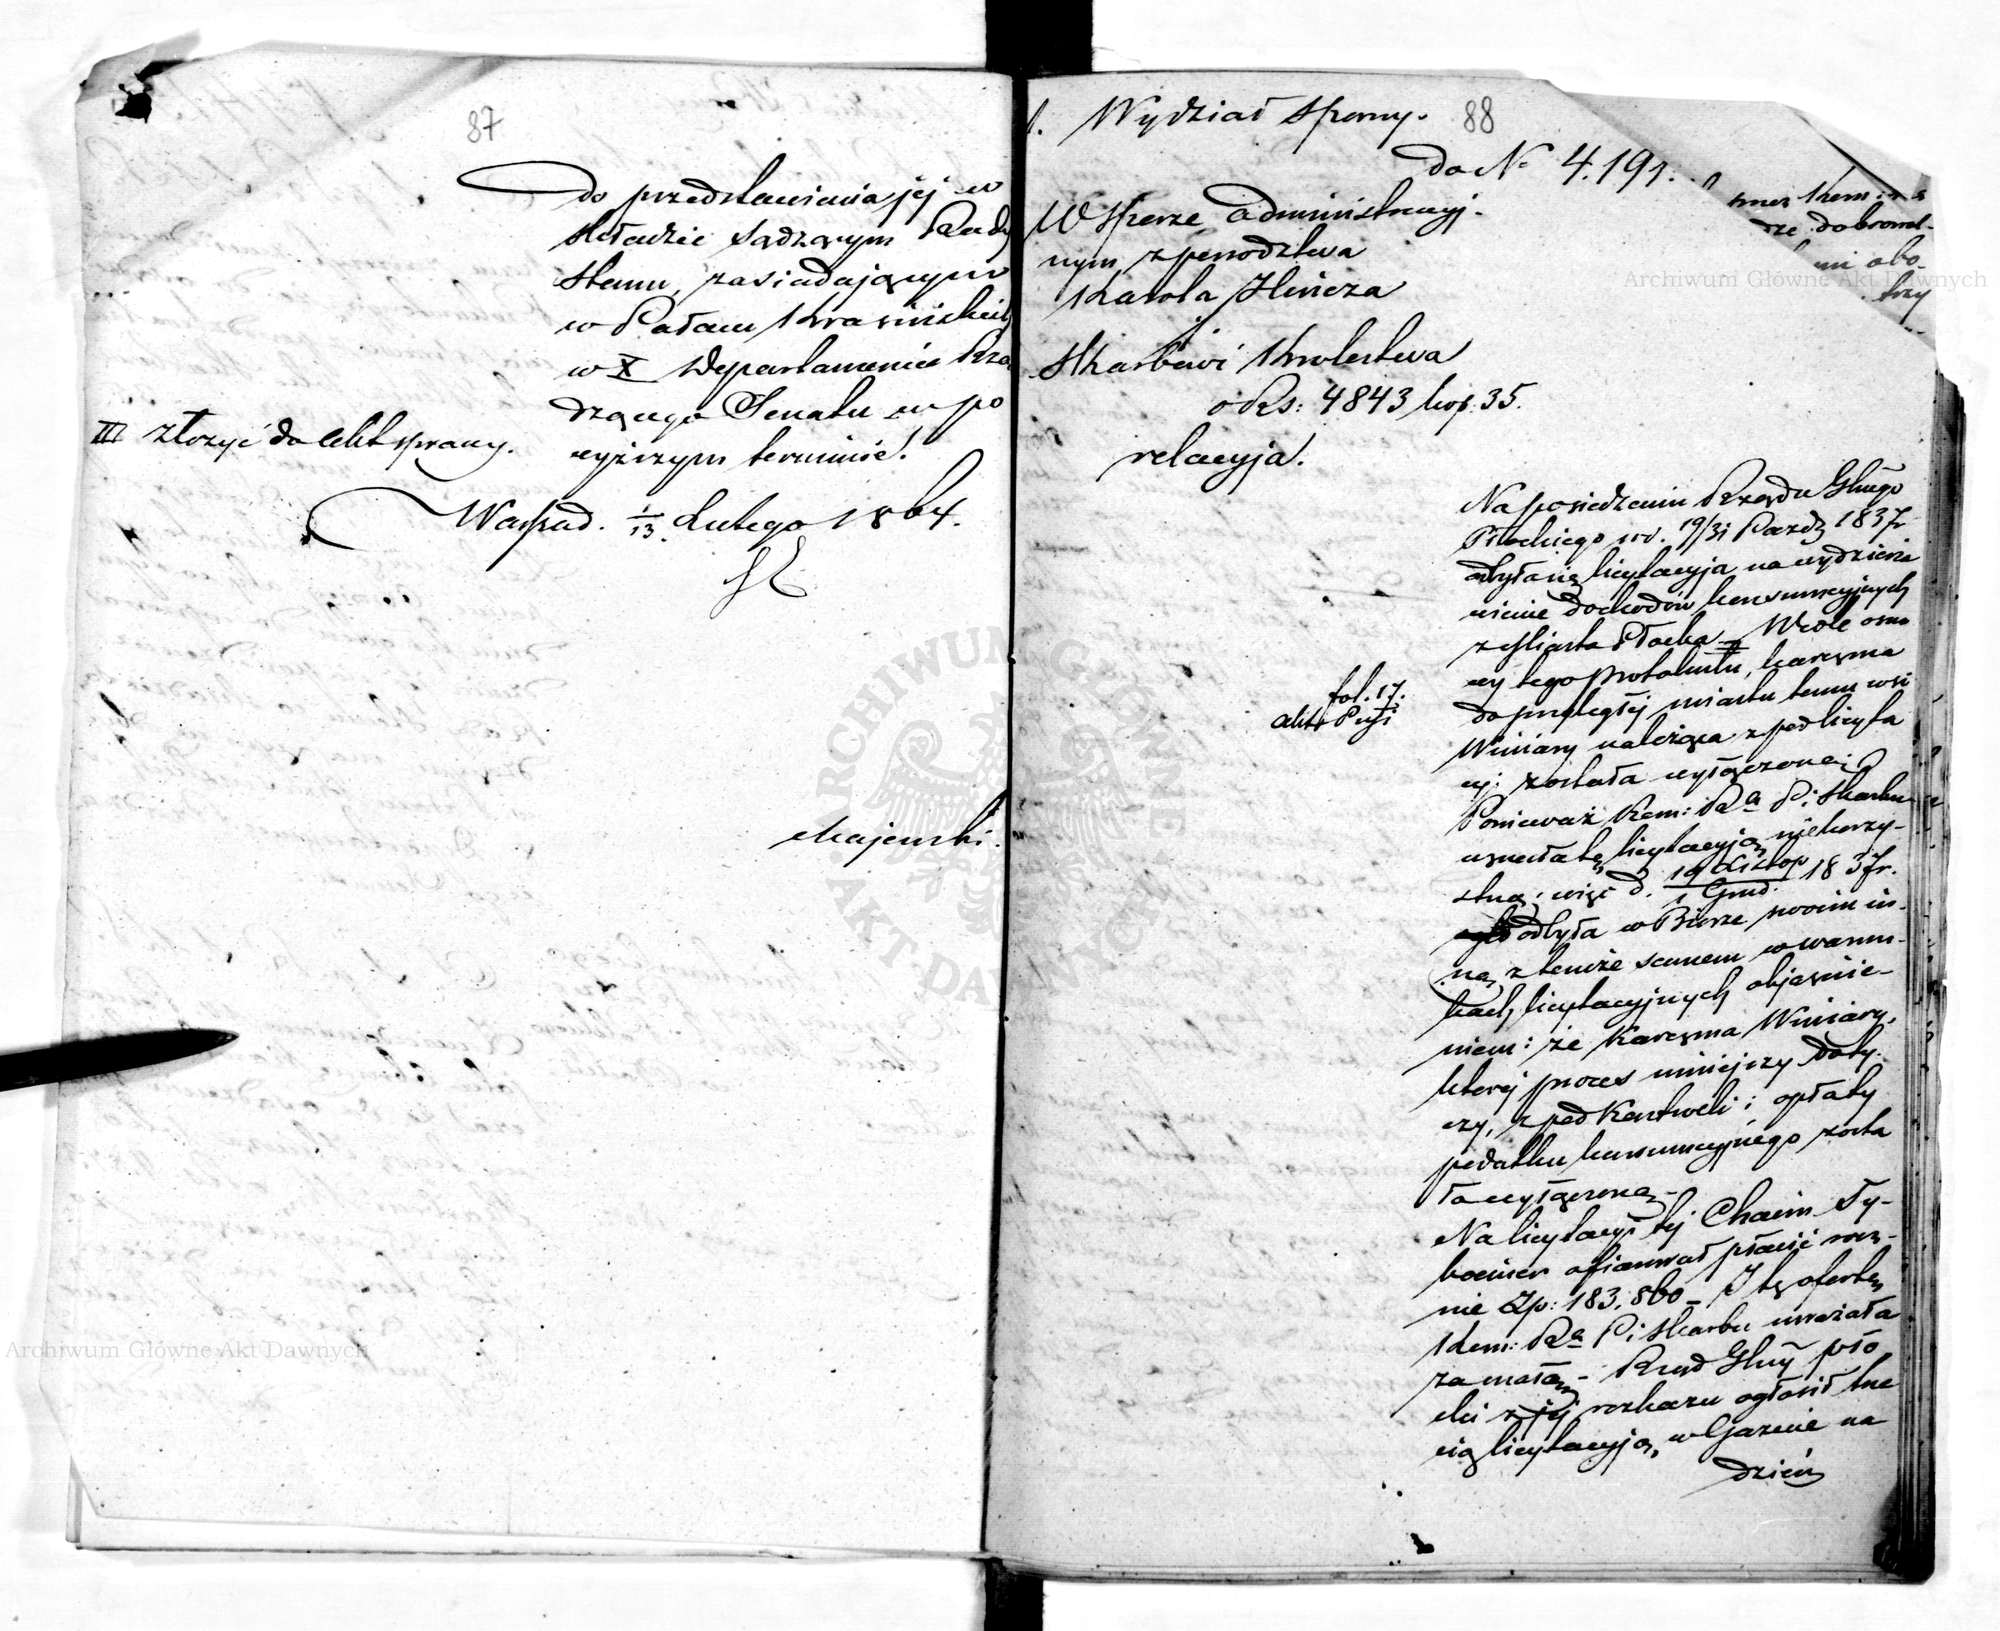 87
do przedstawienia jej w
składzie sądzącym Rady
Stanu, zasiadającym
w Pałacu Krasińskich
w X Departamencie Rzą
dzącego Senatu w po
wyższym terminie!
III złożyć do Akt sprawy.
Warszad. 1/13 Lutego 1864.
Majewski.
1. Wydział Sporny. 88
do No 4.191.
W Sporze Administracyj-
nym z powództwa
Karola Hincza
Skarbowi Królestwa
o Rs: 4843 kop: 35.
relacyja.
Na posiedzeniu Rządu Gbnego
Płockiego w d. 19/31 Paźdz 1837 r
odbyła się licytacyja na wydzierża
wienie dochodów konsumcyjnych
z Miasta Płocka W
cy tego Protokułu, karczma
do przyległej miastu temu wsi
Winiary należąca z pod licyta
cyi została wyłączoną;
Ponieważ Kom: Ra P. i Skarbu
uznała tę licytacyją niekorzy-
stną; więc d. 19 Listop / 1 Grud. 1837 r.
odbyła w Biórze swoim in-
ną, z temże samem w warun-
kach licytacyjnych objaśnie-
niem: że Karczma Winiary,
której proces niniejszy doty-
czy, z pod Kontroli i opłaty
podatku konsumcyjnego zosta
ła wyłączoną-
Na licytacyi tej Chaim Ty-
bociner ofiarował płacić rocz-
nie Zp: 183,860 – I tę ofertę
Kom: Ra P. i Skarbu uważała
za małą – Rząd Gbny Pło
cki z jej rozkazu ogłosił trze
cią licytacyją, w Gazecie na
dzień
fol. 17.
akt
Kom:
dobrowol-
Archiwum Główne Akt Dawnych
Archiwum Główne Akt Dawnych
ARCHIWUM GŁÓWNE AKT DAWNYCH